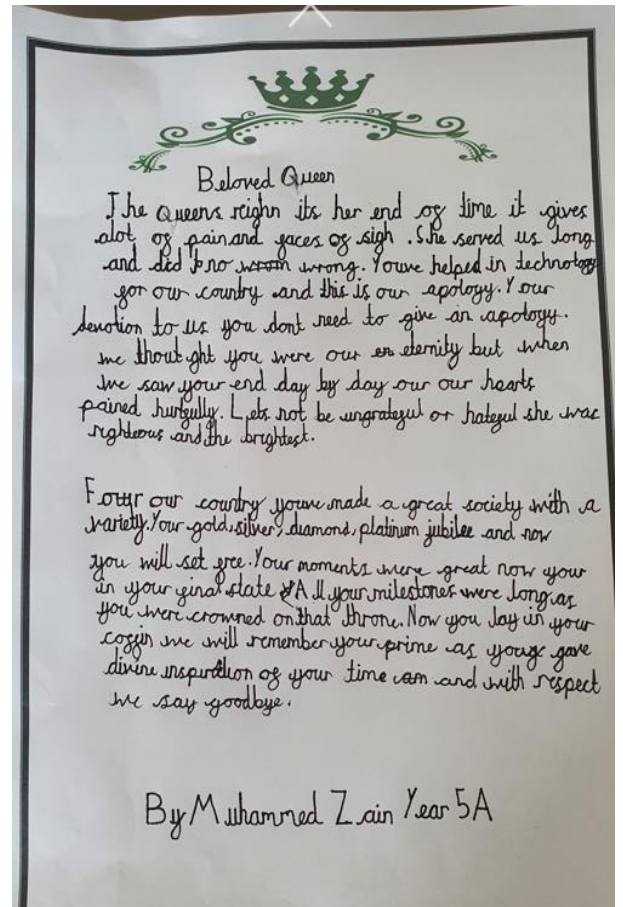 Beloved Queen
The Queens reighn its her end of time it gives
alot of pain and faces of sigh . She served us long
and did no wrom wrong. Youve helped in technology
for our country and this is our apology. Your
devotion to us you dont need to give an apology.
we thoutght you were our en eternity but when
we saw your end day by day our our hearts
pained hurtfully. Lets not be ungrateful or hateful she was
righteous and the brightest.
our country youve made a great society with a
variety. Your gold, silver, diamond, platinum jubilee and now
you will set free. Your moments were great now your
in your final state All your milestones were long as
you were crowned on that throne. Now you lay in your
coffin we will remember your prime as gave
divine inspiration of your time am and with respect
we say goodbye.
By Muhammed Zain Year 5A